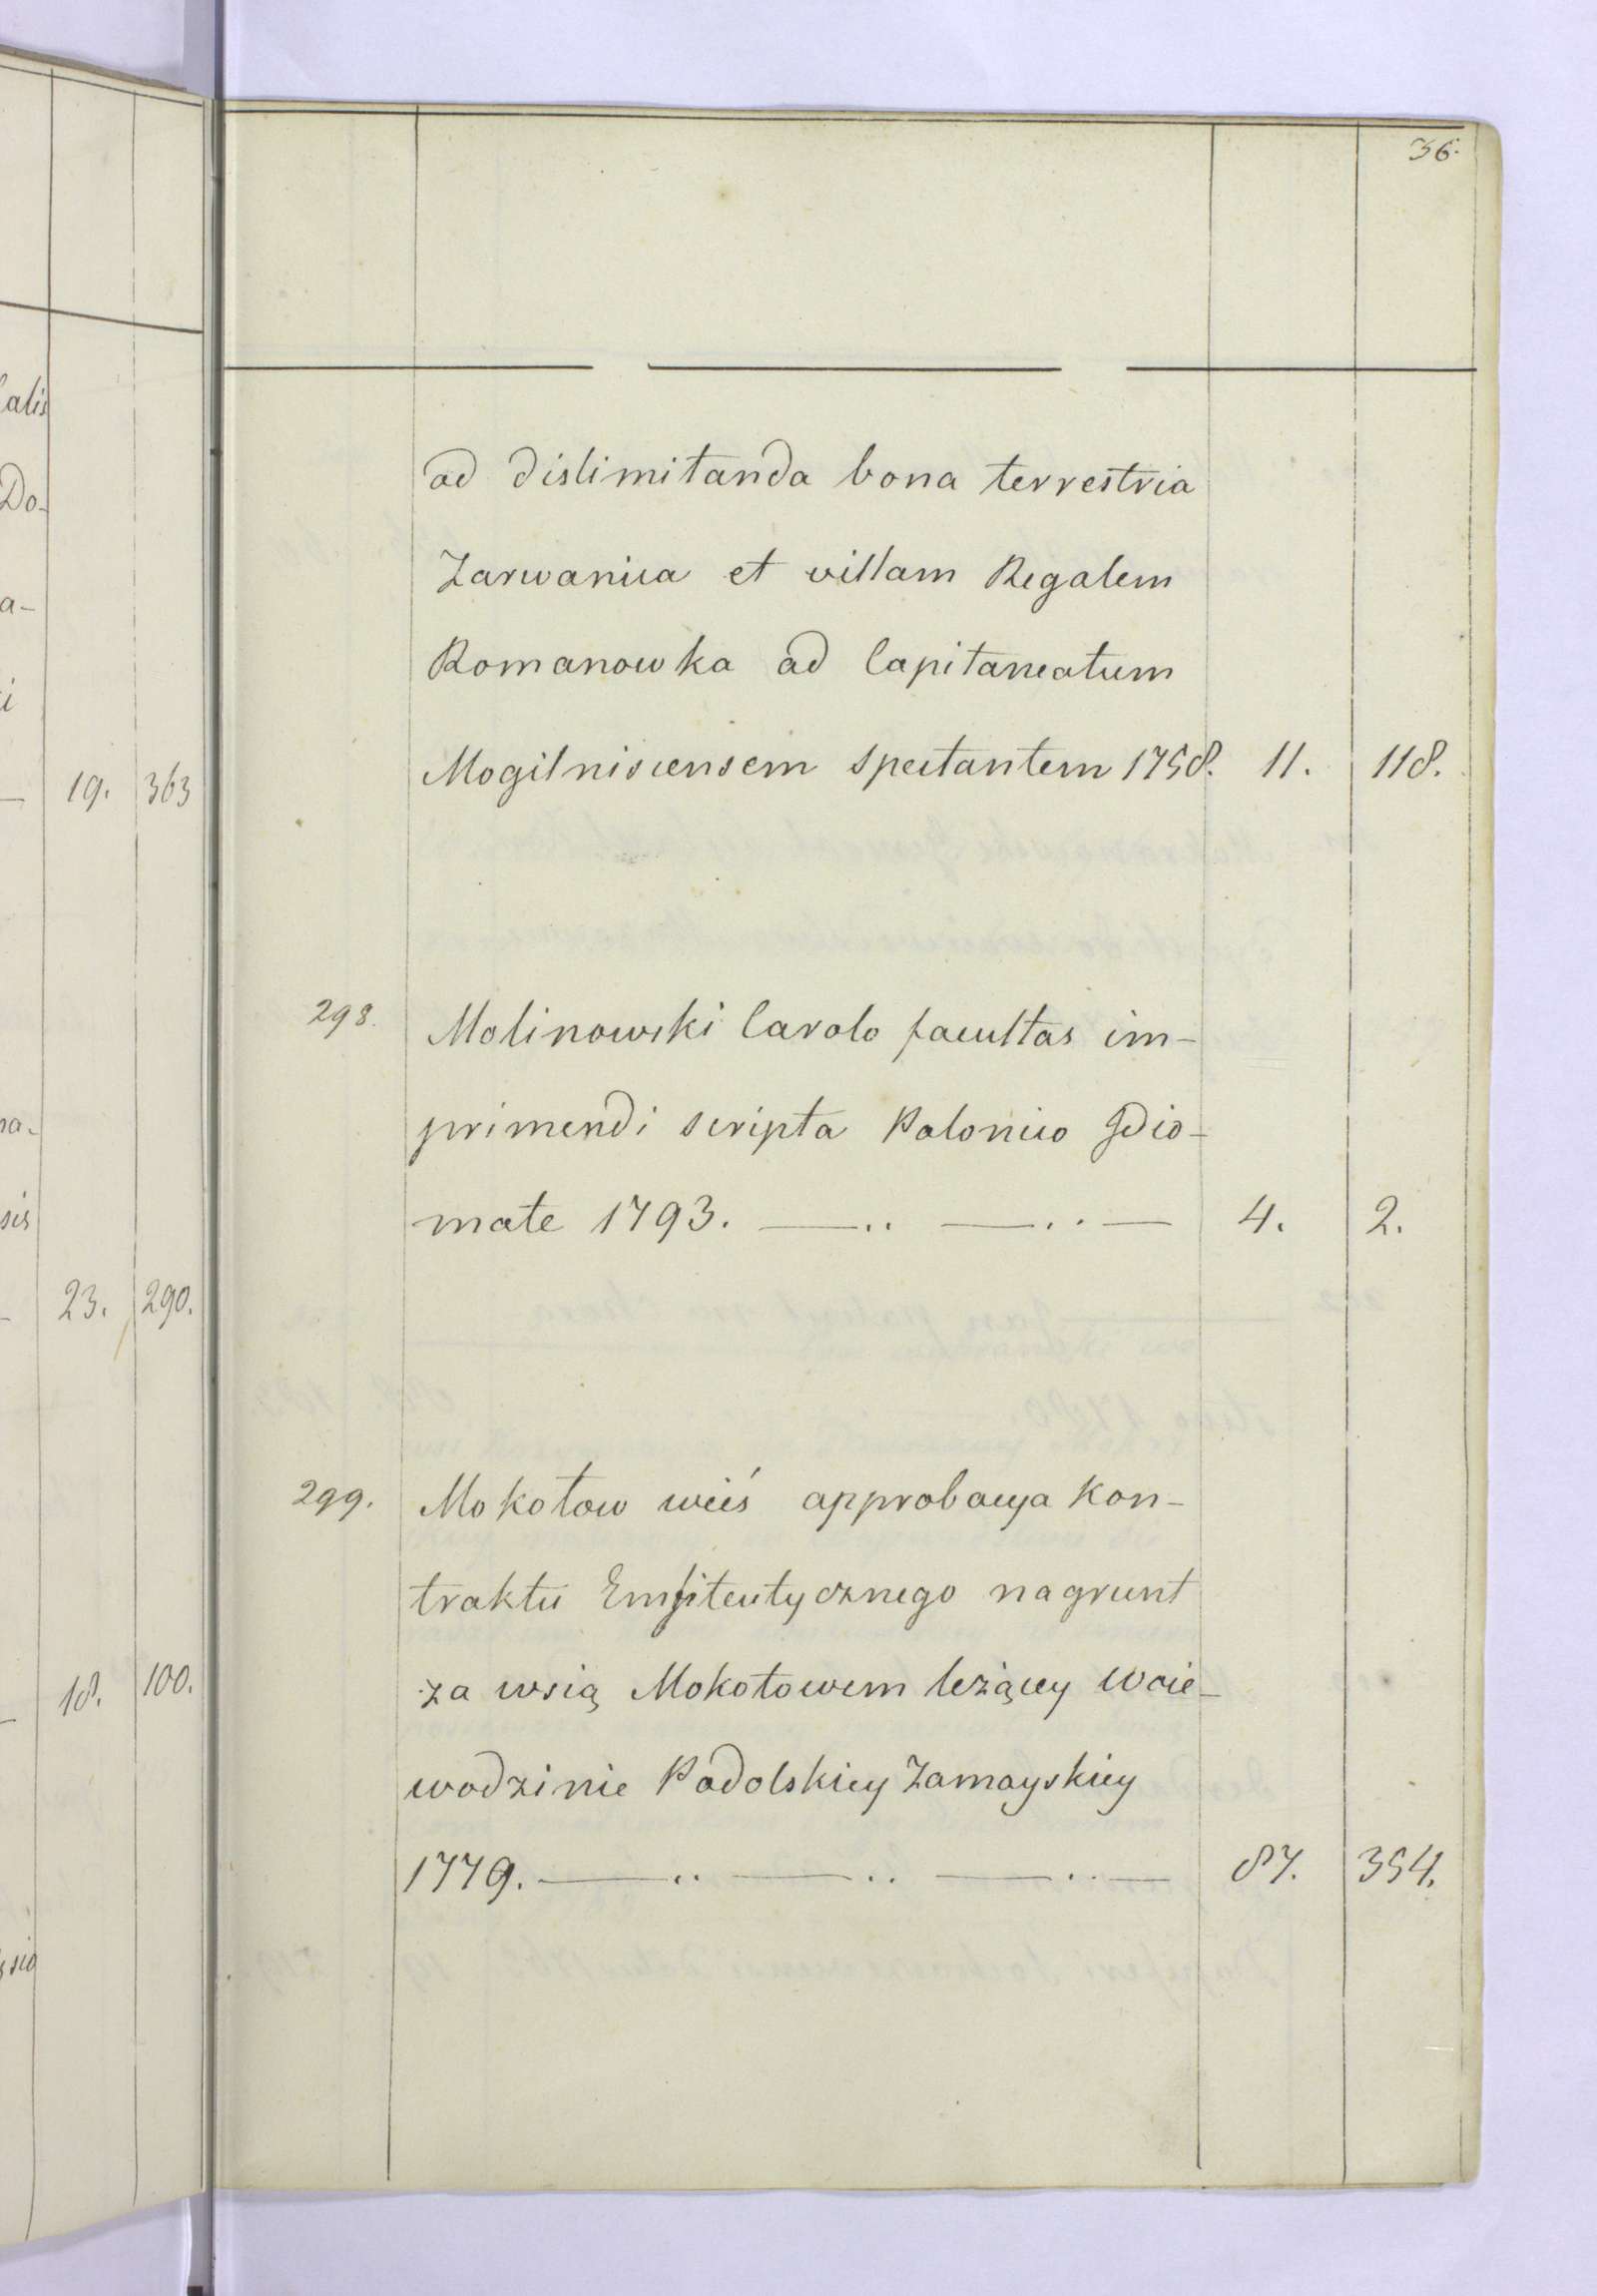 36.
ad dislimitanda bona terrestria
Zarwanica et villam Regalem
Romanowka ad Capitaneatum
Mogilniscensem spectantem 1758. 11. 118.
298. Molinowski Carolo facultas im-
primendi scripta Polonico Idio-
mate 1793. —..—..— 4. 2.
299. Mokotow wieś approbacya Kon-
traktu Emfiteutycznego na grunt
za wsią Mokotowem leżący Woie-
wodzinie Podolskiey Zamoyskiey
1779. —..—..—..— 87. 354.
alis
Do-
a-
i
— 19. 363
na-
sis
— 23. 290.
— 18. 100.
sio